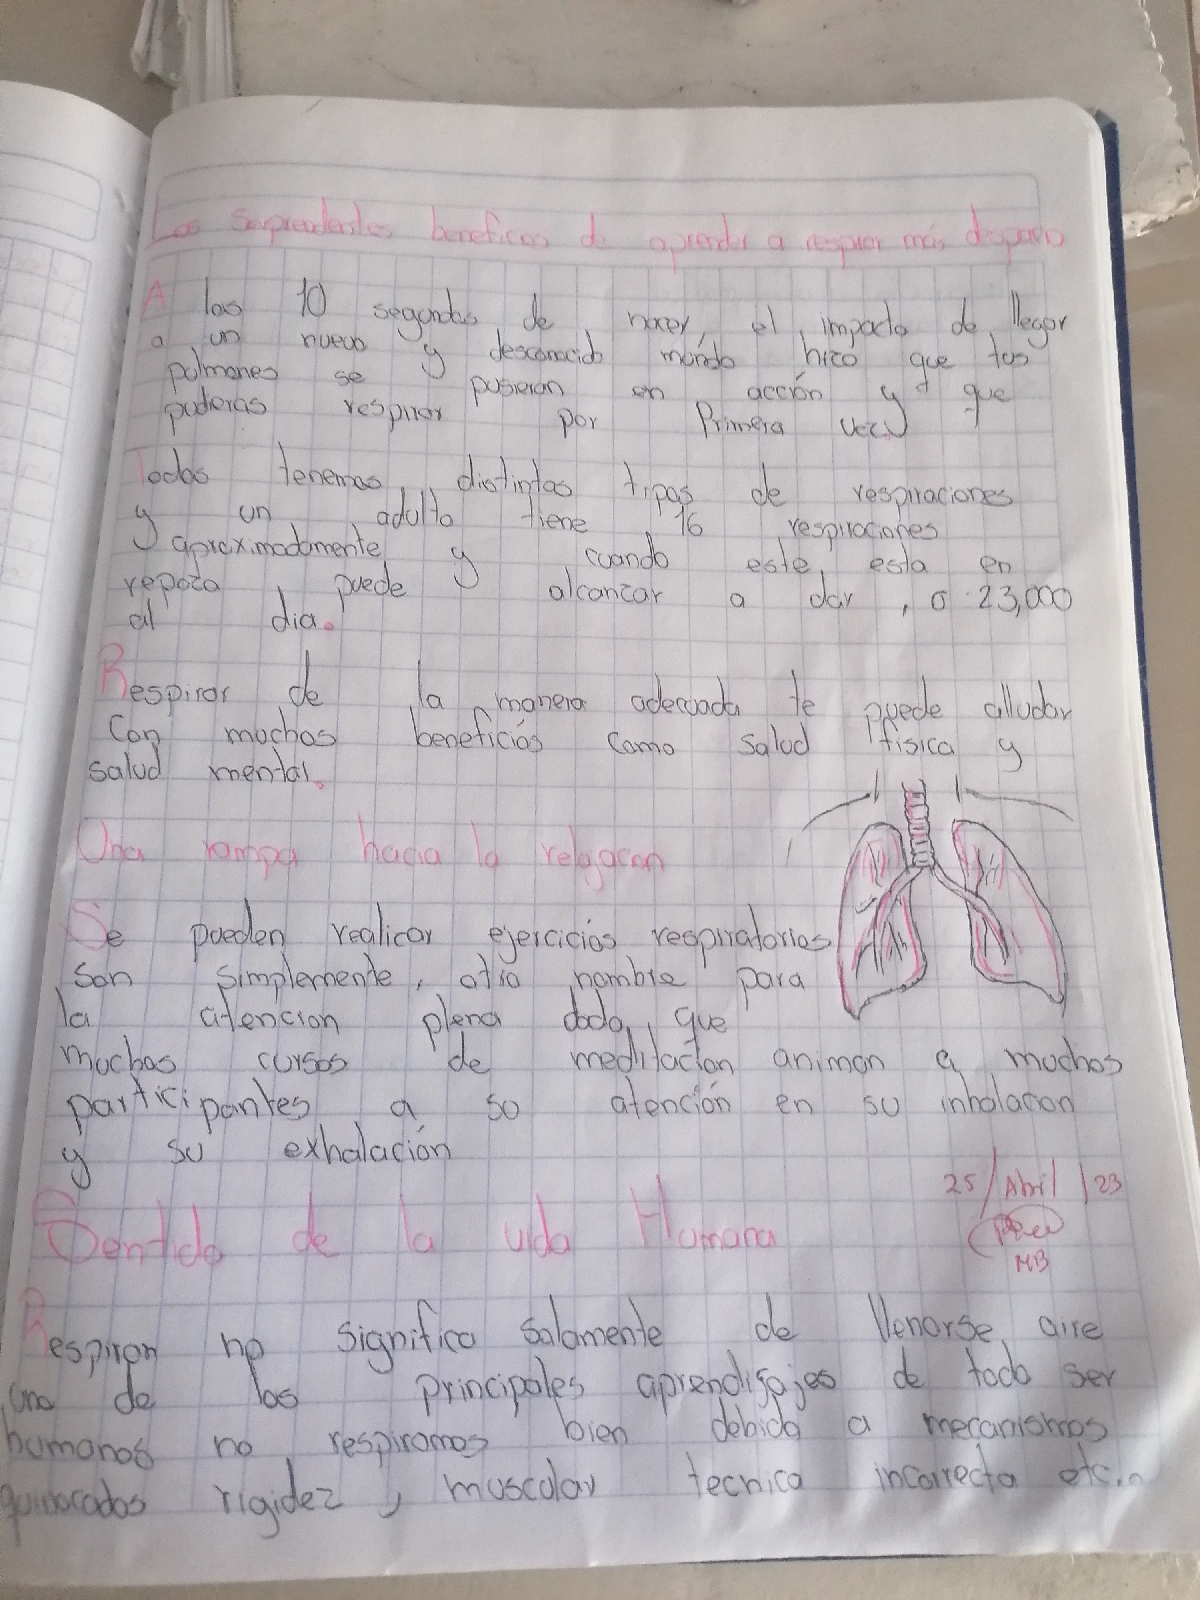 Los sorprendentes beneficios de aprender a respirar más despacio
A las 10 segundos de nacer, el impacto de llegar
a un nuevo y desconocido mundo hizo que tus
pulmones se pusieran en acción y que
pudieras respirar por Primera vez
Todos tenemos distintos tipos de respiraciones
y un adulto tiene 16 respiraciones
aproximadamente y cuando este, esta en
repozo, puede alcanzar a dar, o 23,000
al dia.
Respirar de la manera adecuada te puede alludar
Con muchos beneficios como salud física y
salud mental.
Una rampa hacia la relajacon
Se pueden realizar ejercicios respiratorios
Son simplemente, otro nombre para
la atencion plena dado, que
muchos cursos de meditación animan a muchos
participantes a su atención en su inhalacion
y su exhalación
25/Abril/23
MB
Sentido de la vida Humana
Respiran no significa solamente de llenarse aire
uno de los principales aprendisajes de todo ser
humanos no respiramos bien debido a mecanismos
rigidez, muscular tecnica incorrecta etc..